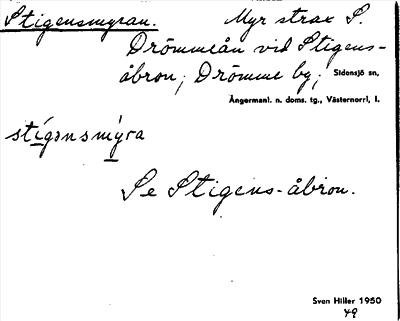 Stigensmyran. Myr strax S.
Drömmeån vid Stigens-
åbron, Drömme by, Sidensjö sn,
Ångermanl. n. doms. tg., Västernorrl, l.
stígənsmýra
Se Stigens-åbron.
Sven Hiller 1950
49